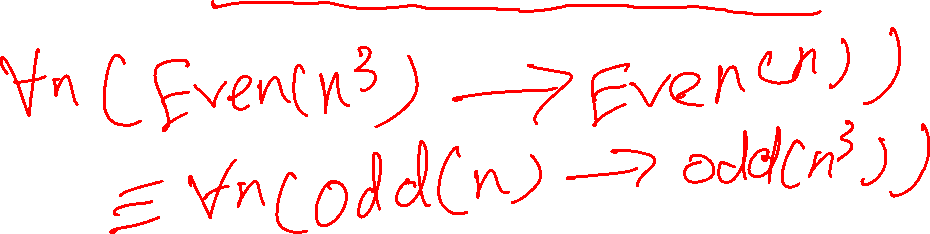 ∀n(Even(n³) → Even(n))
≡ ∀n(odd(n) → odd(n³))